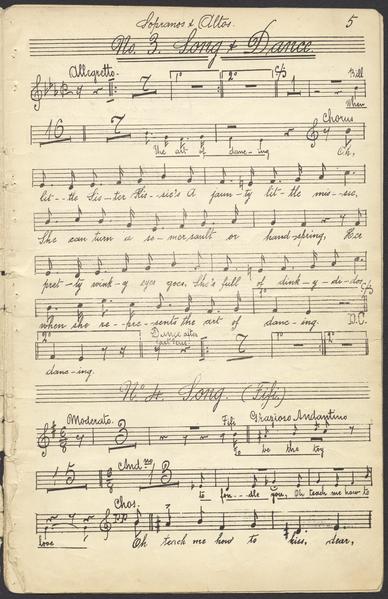 Sopranos & Altos. 5
No. 3. Song & Dance
Allegretto. 7 1º 2º 1 Bill
When
16 7 Chorus
the art of danc-ing Oh,
lit--tle Sis-ter Kis-sie's A jaun-ty lit-tle mis-sie,
She can turn a so-mer-sault or hand-spring, Her
pret-ty wink-y eye goes, She's full of dink-y-di-dos,
when she re--pre-sents the art of danc-ing. D.C.
2º Dance after 7 1º 2º
danc-ing.
No. 4. Song. (Fifi.)
Moderato. 3 Fifi Grazioso Andantino
to be the toy
15 And.no 13
to fon--dle you, Oh teach me how to
Chos.
love Oh teach me how to kiss, dear,